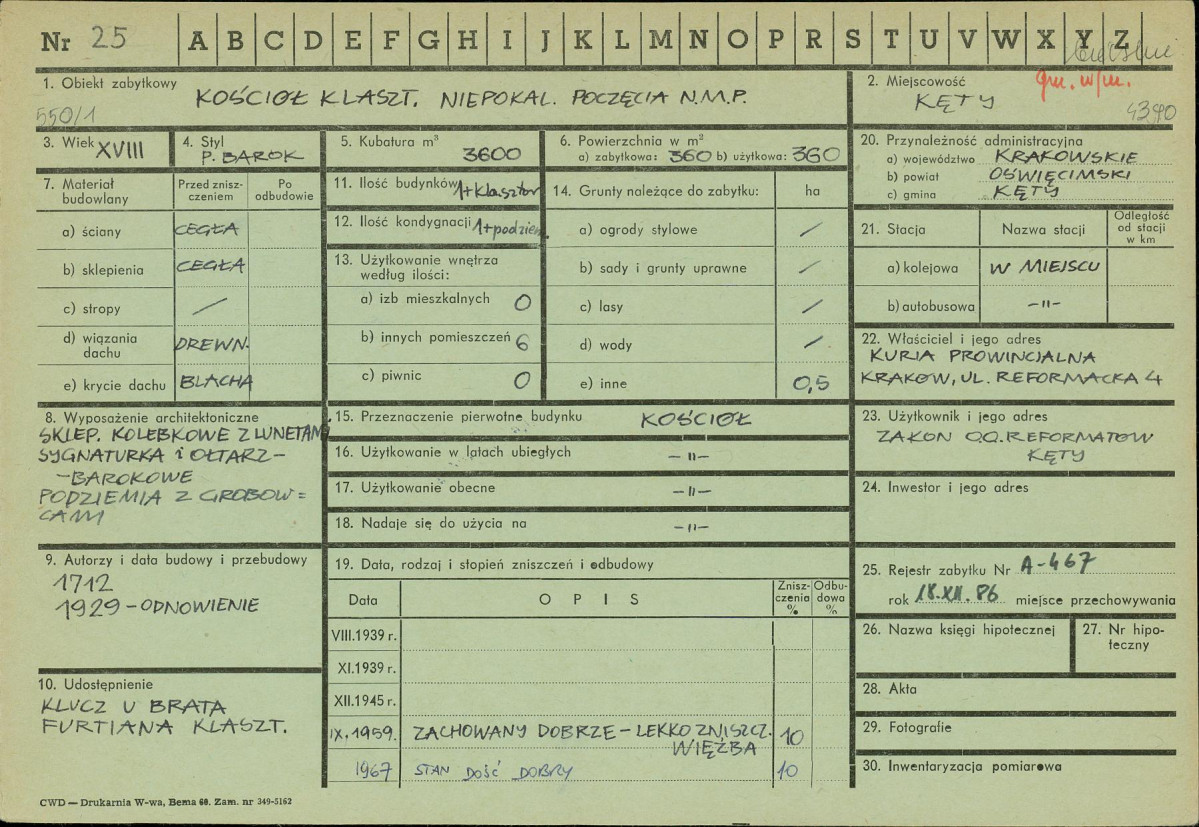 Nr 25 A B C D E F G H I J K L M N O P R S T U V W X Y Z
1. Obiekt zabytkowy
KOŚCIOŁ KLASZT. NIEPOKAL. POCZĘCIA N.M.P.
550/1
2. Miejscowość
gm. w/m.
KĘTY
4390
3. Wiek XVIII
4. Styl
P. BAROK
5. Kubatura m³
3600
6. Powierzchnia w m²
a) zabytkowa: 360 b) użytkowa: 360
7. Materiał budowlany
Przed znisz-
czeniem
Po
odbudowie
a) ściany CEGŁA
b) sklepienia CEGŁA
c) stropy /
d) wiązania
dachu DREWN.
e) krycie dachu BLACHA
8. Wyposażenie architektoniczne
SKLEP. KOLEBKOWE Z LUNETAMI
SYGNATURKA i OŁTARZ-
-BAROKOWE
PODZIEMIA Z GROBOW=
CAMI
9. Autorzy i data budowy i przebudowy
1712
1929-ODNOWIENIE
10. Udostępnienie
KLUCZ U BRATA
FURTIANA KLASZT.
11. Ilość budynków 1+klasztor
12. Ilość kondygnacji 1+podziem.
13. Użytkowanie wnętrza
według ilości:
a) izb mieszkalnych 0
b) innych pomieszczeń 6
c) piwnic 0
14. Grunty należące do zabytku: ha
a) ogrody stylowe /
b) sady i grunty uprawne /
c) lasy /
d) wody /
e) inne 0,5
15. Przeznaczenie pierwotne budynku KOŚCIOŁ
16. Użytkowanie w latach ubiegłych -"-
17. Użytkowanie obecne -"-
18. Nadaje się do użycia na -"-
19. Data, rodzaj i stopień zniszczeń i odbudowy
Data
OPIS
Znisz-
czenia
%
Odbu-
dowa
%
VIII.1939 r.
XI.1939 r.
XII.1945 r.
IX.1959. ZACHOWANY DOBRZE – LEKKO ZNISZCZ.
WIĘŹBA 10
1967 STAN DOŚĆ DOBRY 10
20. Przynależność administracyjna
a) województwo KRAKOWSKIE
b) powiat OŚWIĘCIMSKI
c) gmina KĘTY
21. Stacja
Nazwa stacji
Odległość
od stacji
w km
a) kolejowa W MIEJSCU
b) autobusowa -"-
22. Właściciel i jego adres
KURIA PROWINCJALNA
KRAKOW, UL. REFORMACKA 4
23. Użytkownik i jego adres
ZAKON OO. REFORMATOW
KĘTY
24. Inwestor i jego adres
25. Rejestr zabytku Nr A-467
rok 18.XII.86 miejsce przechowywania
26. Nazwa księgi hipotecznej
27. Nr hipo-
teczny
28. Akta
29. Fotografie
30. Inwentaryzacja pomiarowa
CWD — Drukarnia W-wa, Bema 60. Zam. nr 349-5162